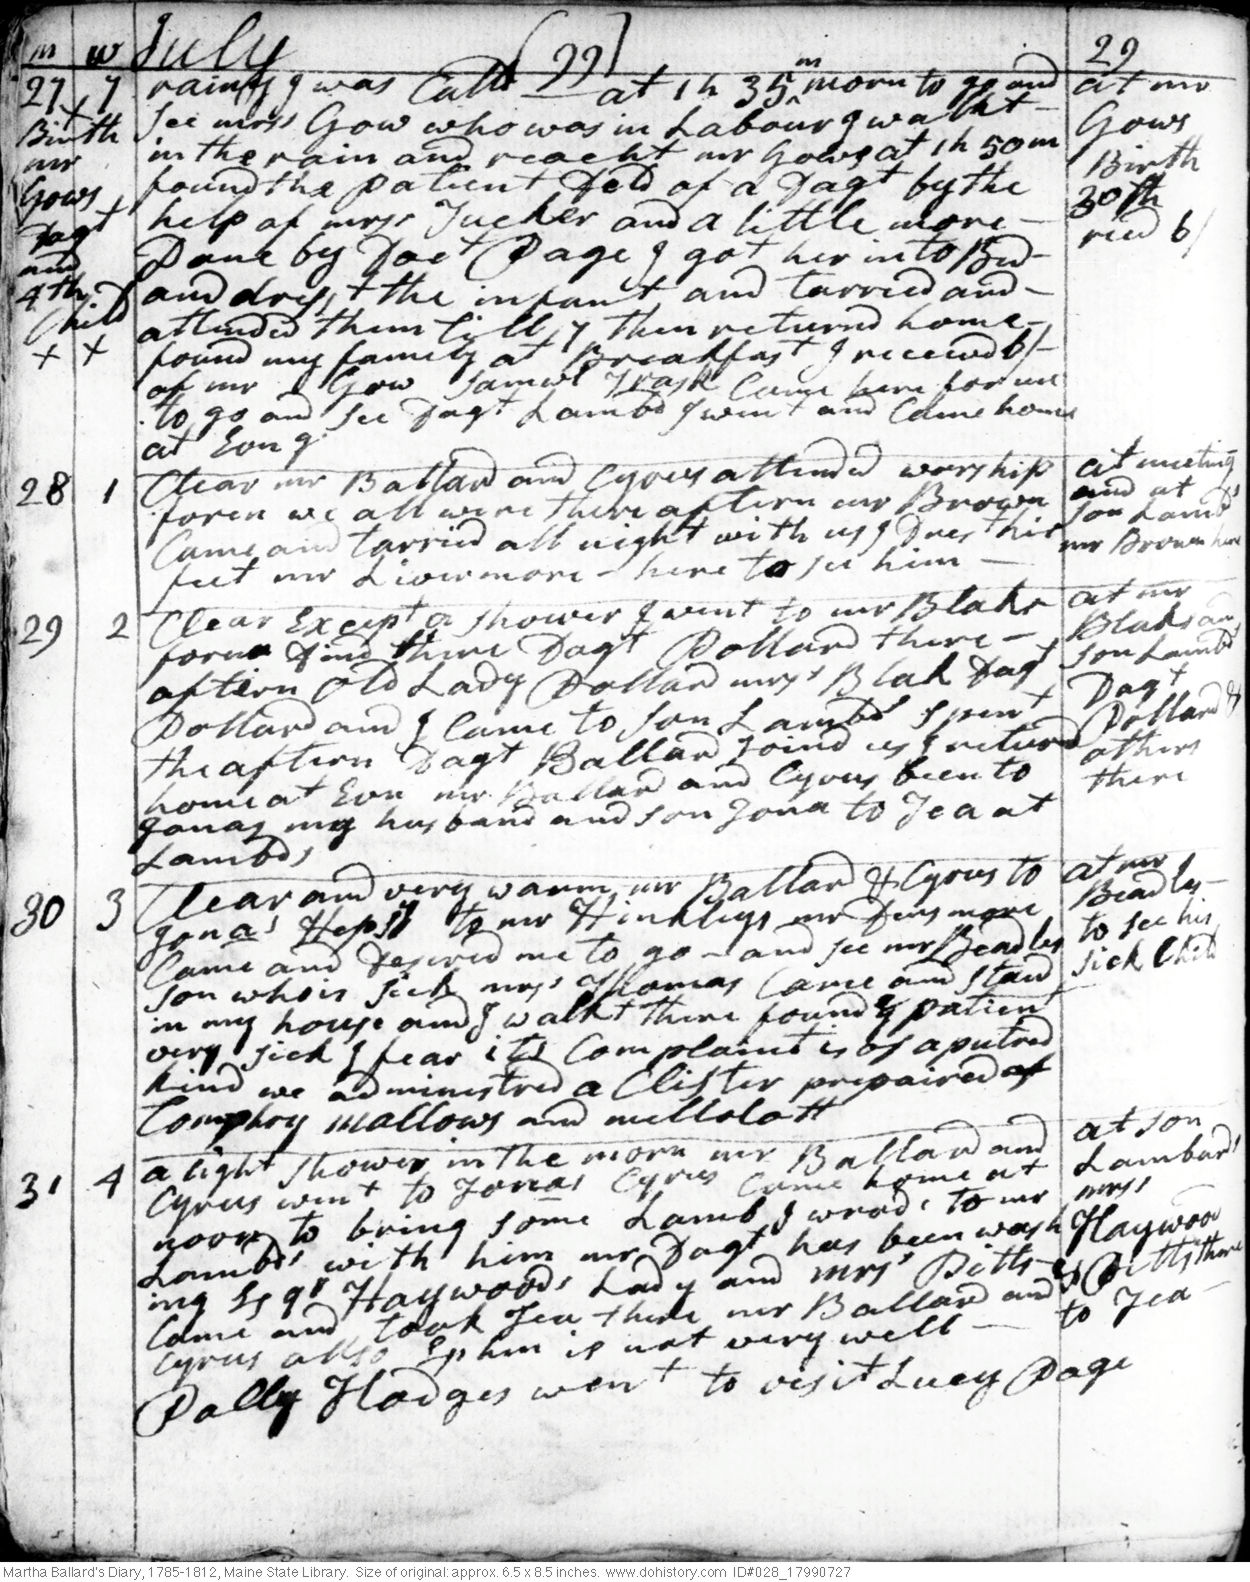 m w July [99] 29
27 7 rainy I was Calld at 1h 35m morn to go and
see mrss Gow who was in Labour I walkt
in the rain and reacht mr Gows at 1h 50m
found the patient Deld of a Dagt by the
help of mrss Tucker and a little more
Done by Doct Page I got her into Bed
and dresst the infant and tarried and
attended them till 7 then returnd home
found my family at Breakfast I receivd 6/
of mr Gow Samul Trask Came here for me
to go and see Dagt Lambd I went and Came home
at Evng
+
Birth
mr
Gows
Dagt
and
4th
Child
+ +
at mr
Gows
Birth
30th
recd 6/
28 1 Clear mr Ballard and Cyrus attended worship
foren we all were there aftern mr Brown
Came and tarried all night with us I Drest his
feet mr Livermore here to see him
at meeting
and at
son Lambds
mr Brown here
29 2 Clear Except a shower I went to mr Blaks
foren Dind there Dagt Pollard there
aftern old Lady Pollard mrss Blak Dagt
Pollard and I Came to son Lambds spent
the aftern Dagt Ballard joind us I returd
home at Evn mr Ballard and Cyrus been to
Jonas my husband and son Jona to Tea at
Lambds
at mr
Blaks and
son Lambds
Dagt
Pollard &
others
there
30 3 Clear and very warm mr Ballard & Cyrus to
Jonas Hepsy to mr Hinkleys mr Densmore
Came and Desired me to go and see mr Beadles
son who is sick mrss Thomas Came and staid
in my house and I walkt there found ye patient
very sick I fear its Complaint is of a putred
kind we administred a Clister prepaired of
Comphry mallows and mellolott
at mr
Beadles
to see his
sick Child
31 4 a light shower in the morn mr Ballard and
Cyrus went to Jonas Cyrus Came home at
noon to bring some Lamb I wrod to mr
Lambds with him mr Dagt has been wash
ing Esqr Haywoods Lady and mrss Pitts
Came and took Tea there mr Ballard and
Cyrus allso Ephm is not very well
Polly Hodges went to visit Lucy Page
at son
Lambards
mrss
Haywood
& Pitts there
to Tea
Martha Ballard's Diary, 1785-1812, Maine State Library. Size of original: approx. 6.5 x 8.5 inches. www.dohistory.com ID#028_17990727